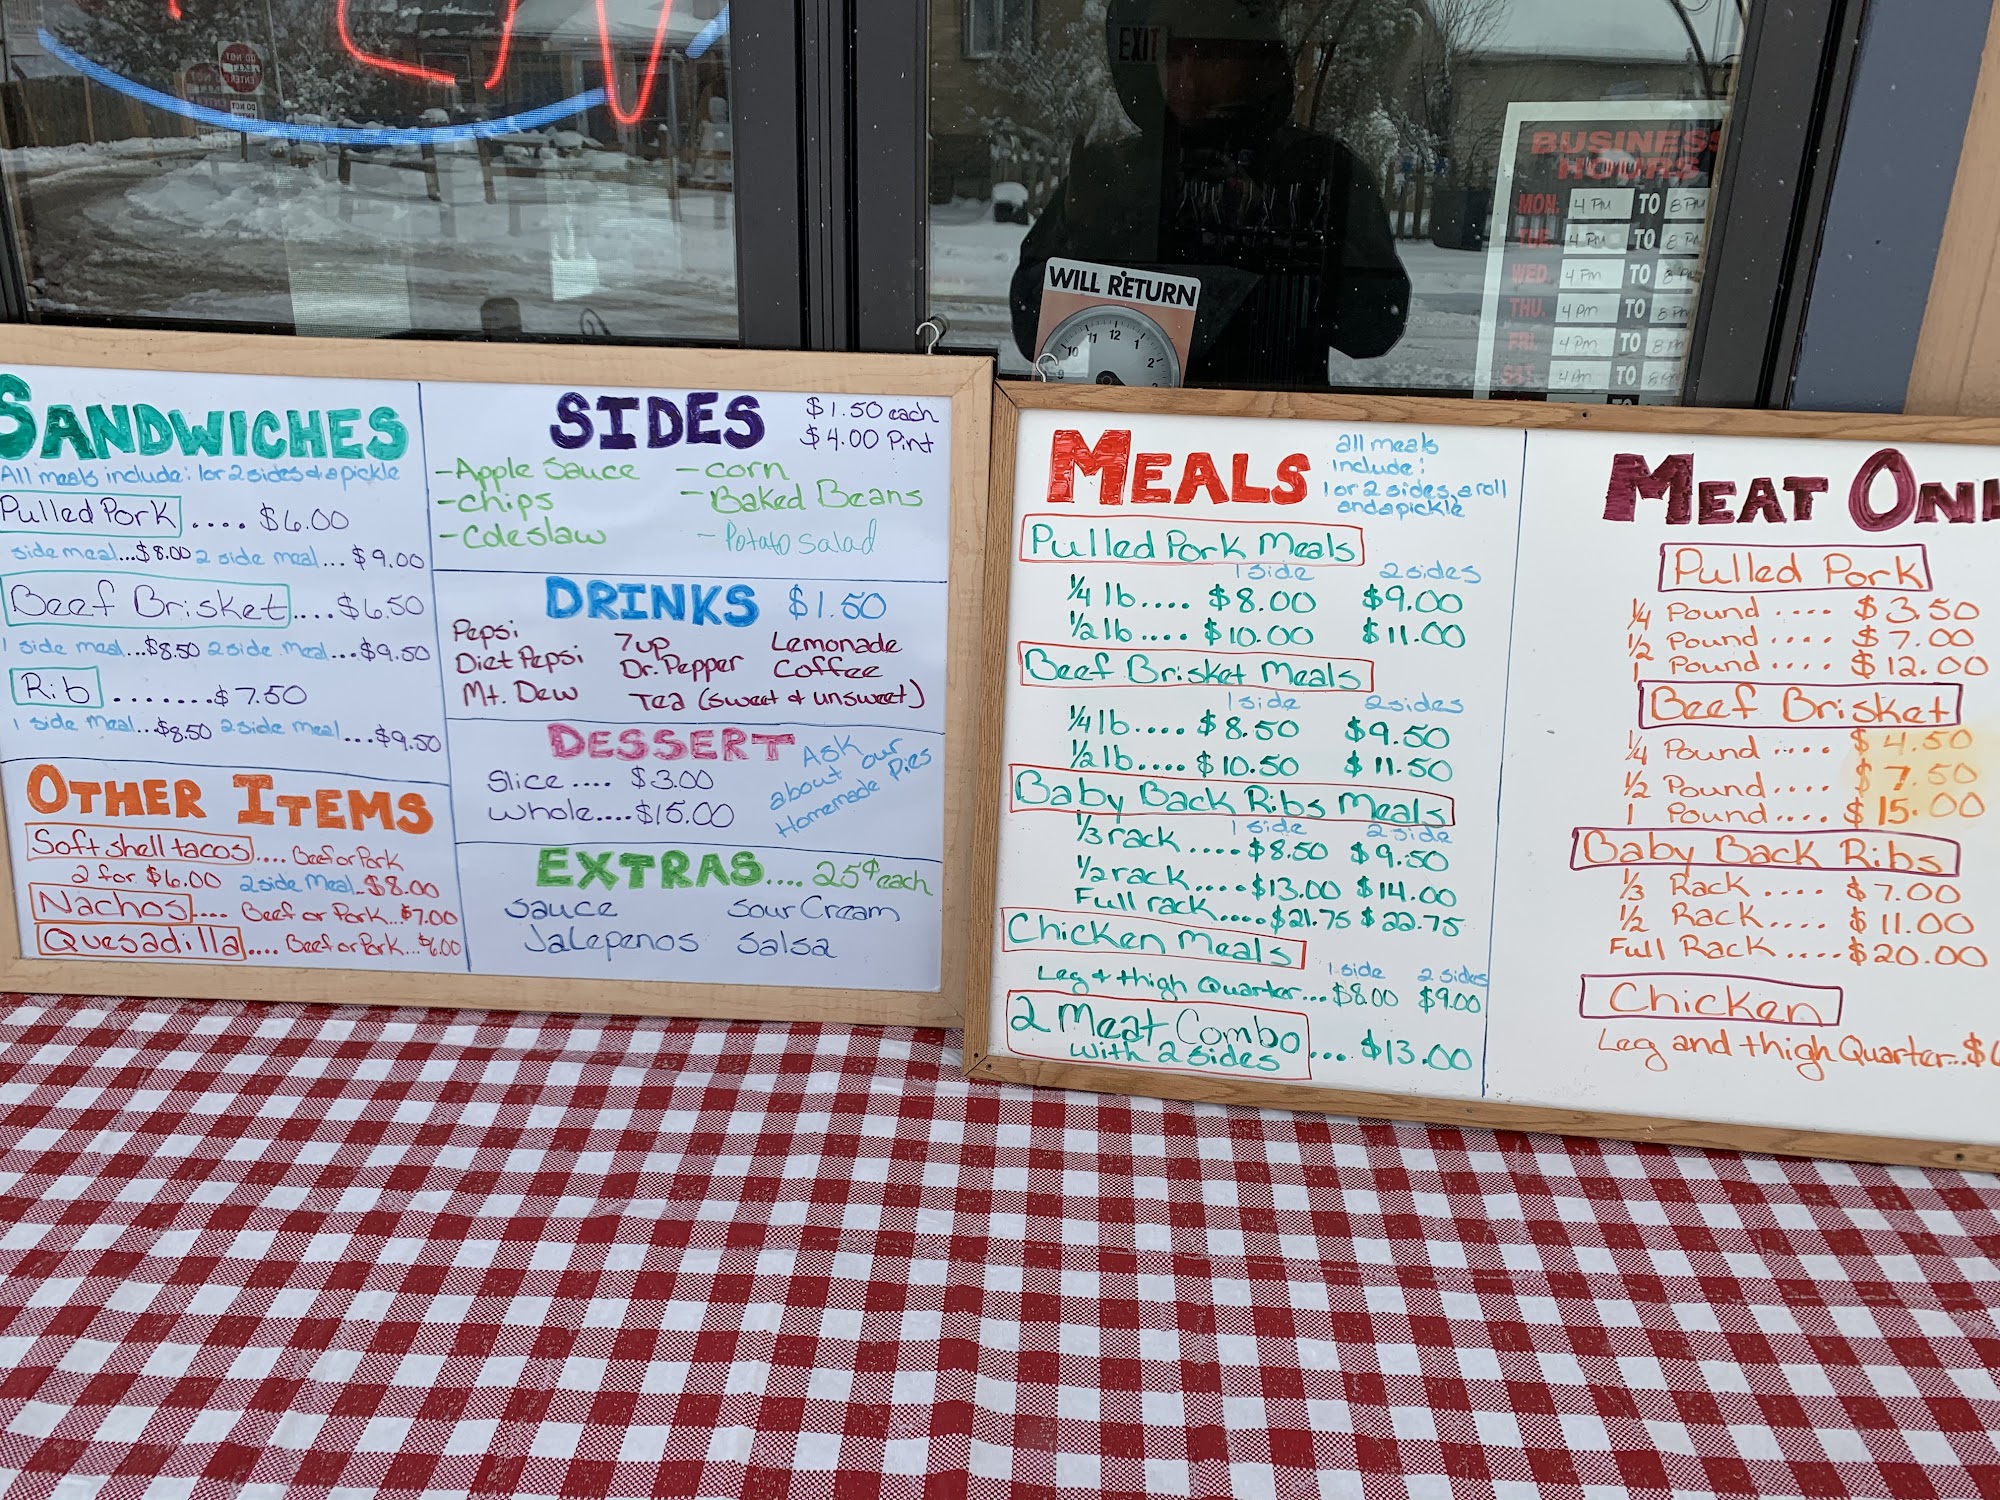 EXIT
WILL RETURN
10 11 12 1 2
BUSINESS
HOURS
MON. 4 PM TO 8 PM
TUE. 4 PM TO 8 PM
WED. 4 PM TO 8 PM
THU. 4 PM TO 8 PM
FRI. 4 PM TO 8 PM
SAT. 4 PM TO 8 PM
SANDWICHES
All meals include: 1 or 2 sides & a pickle
Pulled Pork .... $6.00
side meal...$8.00 2 side meal... $9.00
Beef Brisket....$6.50
1 side meal...$8.50 2 side meal...$9.50
Rib .......$7.50
1 side meal...$8.50 2 side meal...$9.50
OTHER ITEMS
Soft shell tacos.... Beef or Pork
2 for $6.00 2 side Meal..$8.00
Nachos.... Beef or Pork...$7.00
Quesadilla.... Beef or Pork...$6.00
SIDES $1.50 each
$4.00 Pint
-Apple Sauce -corn
-chips -Baked Beans
-Coleslaw -Potato salad
DRINKS $1.50
Pepsi 7up Lemonade
Diet Pepsi Dr. Pepper Coffee
Mt. Dew Tea (sweet & unsweet)
DESSERT
Slice.... $3.00
whole....$15.00
Ask about our Homemade Pies
EXTRAS.... 25¢ each
Sauce Sour Cream
Jalepenos Salsa
MEALS
all meals
include:
1 or 2 sides, a roll
and a pickle
Pulled Pork Meals
1 side 2 sides
1/4 lb.... $8.00 $9.00
1/2 lb.... $10.00 $11.00
Beef Brisket Meals
1 side 2 sides
1/4 lb.... $8.50 $9.50
1/2 lb.... $10.50 $11.50
Baby Back Ribs Meals
1 side 2 side
1/3 rack ....$8.50 $9.50
1/2 rack....$13.00 $14.00
Full rack....$21.75 $22.75
Chicken Meals
1 side 2 sides
Leg & thigh Quarter...$8.00 $9.00
2 Meat Combo
with 2 sides ... $13.00
MEAT ONL
Pulled Pork
1/4 Pound .... $3.50
1/2 Pound .... $7.00
1 Pound .... $12.00
Beef Brisket
1/4 Pound .... $4.50
1/2 Pound .... $7.50
1 Pound .... $15.00
Baby Back Ribs
1/3 Rack .... $7.00
1/2 Rack .... $11.00
Full Rack ....$20.00
Chicken
Leg and thigh Quarter...$